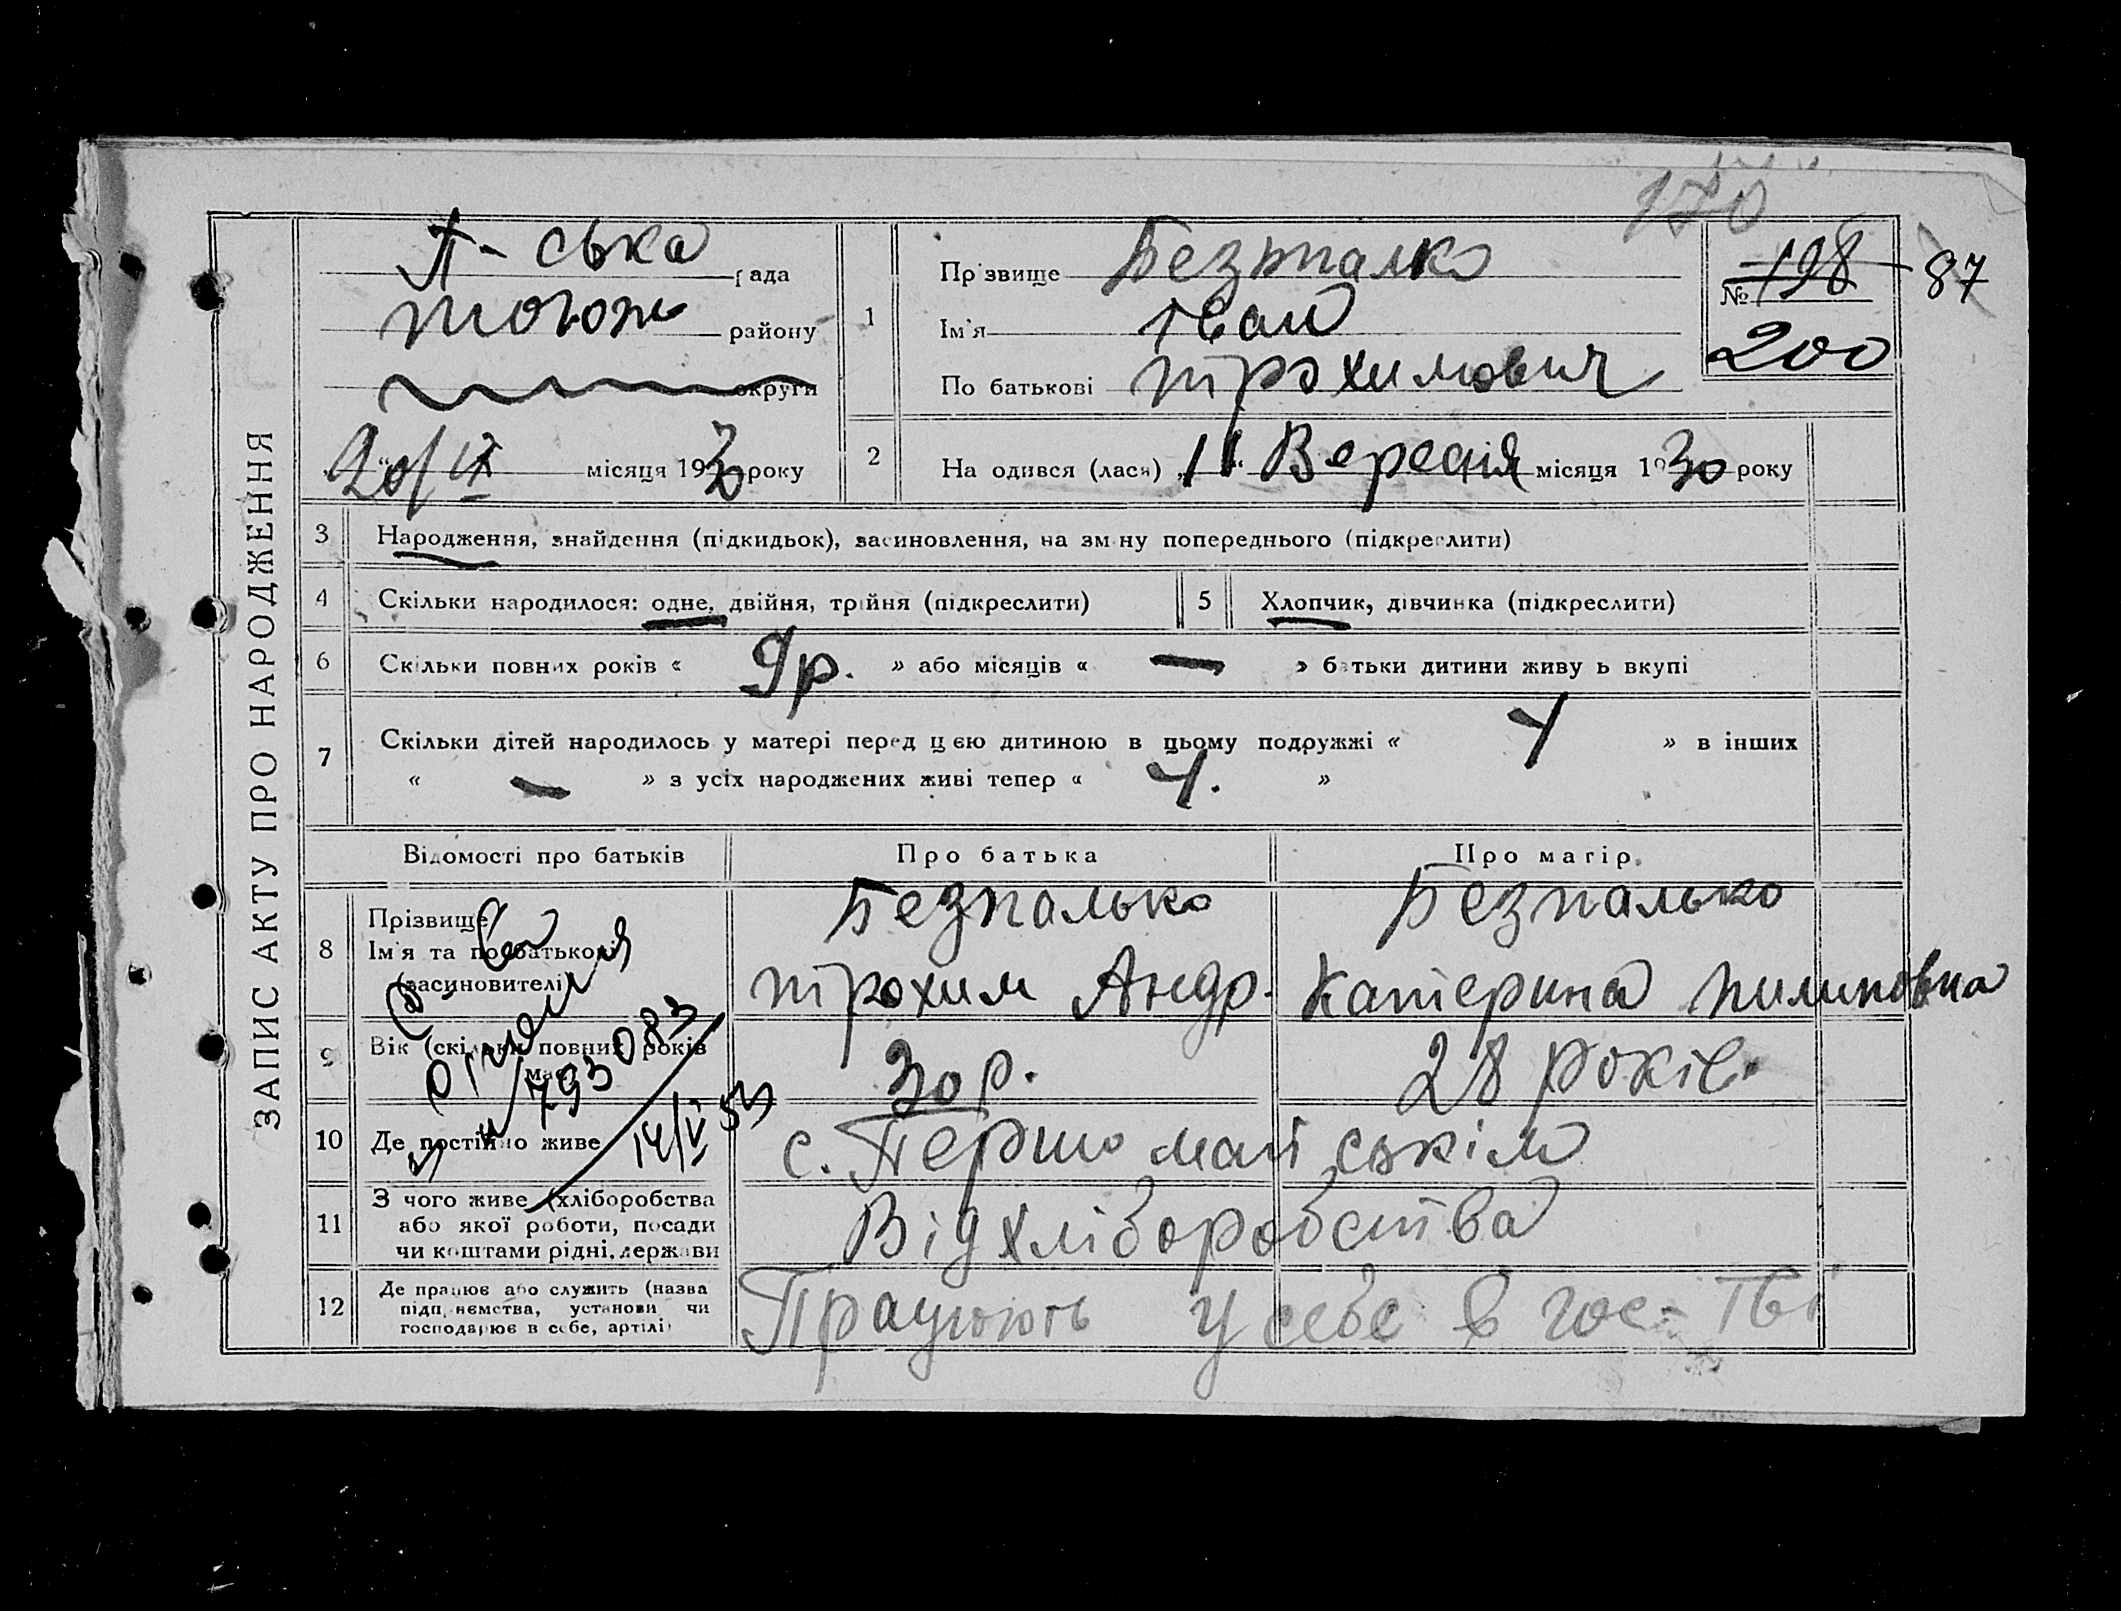 170
ЗАПИС АКТУ ПРО НАРОДЖЕННЯ
П-ська рада
району
округи
20/IX місяця 1930 року
1
Прізвище Безпалко
Ім'я Іван
По батькові Трохимович
№ 198 87
200
2 На одився (лася) „11“ Вересня місяця 1930 року
3 Народження, знайдення (підкидьок), засиновлення, на зміну попереднього (підкреслити)
4 Скільки народилося: одне, двійня, трійня (підкреслити) 5 Хлопчик, дівчинка (підкреслити)
6 Скільки повних років « 9 р. » або місяців « — » батьки дитини живу ь вкупі
7 Скільки дітей народилось у матері перед цією дитиною в цьому подружжі « 4 » в інших
« — » з усіх народжених живі тепер « 4. »
Відомості про батьків Про батька Про матір
8 Прізвище
Ім'я та по батькові
(засиновителі)
Безпалько
Трохим Андр.
Безпалько
Катерина Пилиповна
9 Вік (скільки повних років
має) 30 р. 28 років.
793083
14/V 53
10 Де постійно живе с. Першомайськім
11 З чого живе (хліборобства
або якої роботи, посади
чи коштами рідні, держави
Від хліборобства
12 Де працює або служить (назва
підприємства, установи чи
господарює в себе, артілі)
Працюють у себе в гос-тві